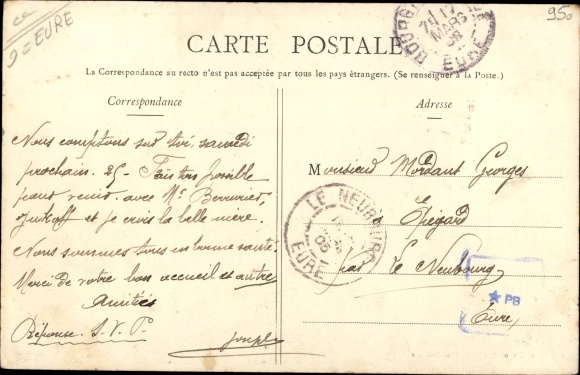 ce
D = EURE
950
BOURG
MARS
EURE
CARTE POSTALE
La Correspondance au recto n'est pas acceptée par tous les pays étrangers. (Se renseigner à la Poste.)
Correspondance
Nous comptons sur toi, samedi
prochain. 25 - Fais ton possible
pour venir avec Mr
et je crois la belle mère.
Nous sommes tous en bonne santé.
Merci de votre bon accueil et autre
Amitiés
Réponse. S.V.P.
Adresse
Monsieur Mordant Georges
à
Epégard
par Le Neubourg
Eure,
LE NEUBOURG
EURE
★ PB